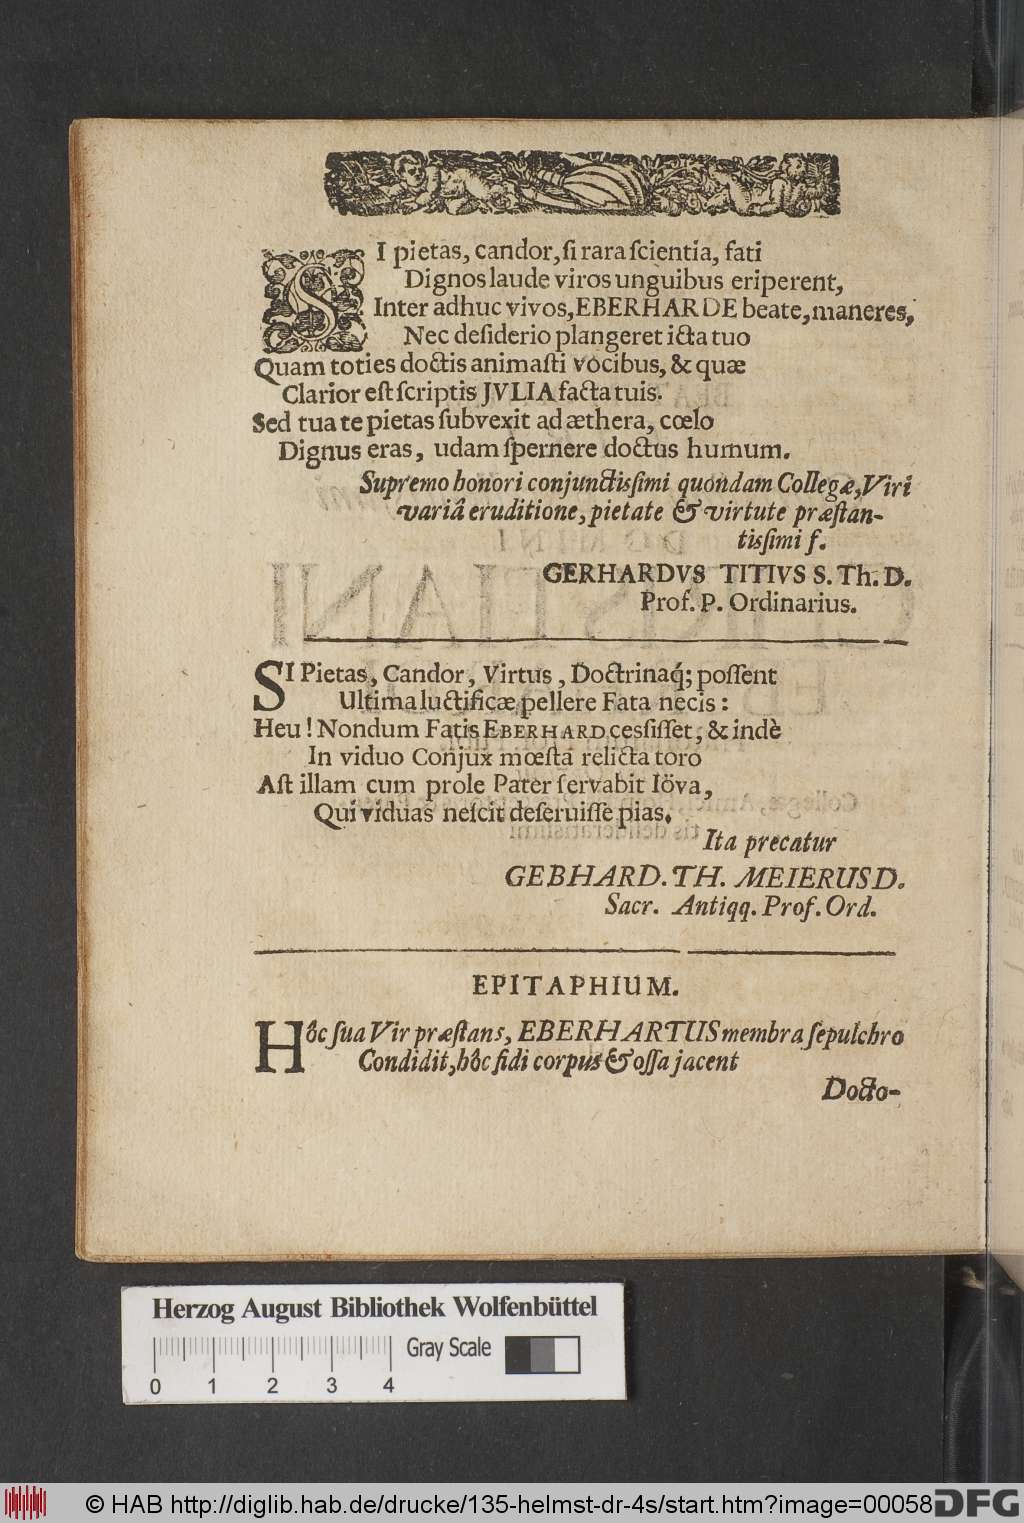 SI pietas, candor, ſi rara ſcientia, fati
Dignos laude viros unguibus eriperent,
Inter adhuc vivos, EBERHARDE beate, maneres,
Nec deſiderio plangeret icta tuo
Quam toties doctis animaſti vocibus, & quæ
Clarior eſt ſcriptis JVLIA facta tuis.
Sed tua te pietas ſubvexit ad æthera, cœlo
Dignus eras, udam ſpernere doctus humum.
Supremo honori conjunctisſimi quondam Collegæ, Viri
variâ eruditione, pietate & virtute præſtan-
tisſimi f.
GERHARDVS TITIVS S. Th. D.
Prof. P. Ordinarius.
SI Pietas, Candor, Virtus, Doctrinaq́; poſſent
Ultima luctificæ pellere Fata necis:
Heu! Nondum Fatis EBERHARD cesſiſſet, & indè
In viduo Conjux mœsta relicta toro
Aſt illam cum prole Pater ſervabit Iöva,
Qui viduas neſcit deſeruiſſe pias.
Ita precatur
GEBHARD. TH. MEIERUS D.
Sacr. Antiqq. Prof. Ord.
EPITAPHIUM.
Hôc ſua Vir præſtans, EBERHARTUS membra ſepulchro
Condidit, hôc fidi corpus & oſſa jacent
Docto-
Herzog August Bibliothek Wolfenbüttel
Gray Scale
0 1 2 3 4
© HAB http://diglib.hab.de/drucke/135-helmst-dr-4s/start.htm?image=00058
DFG